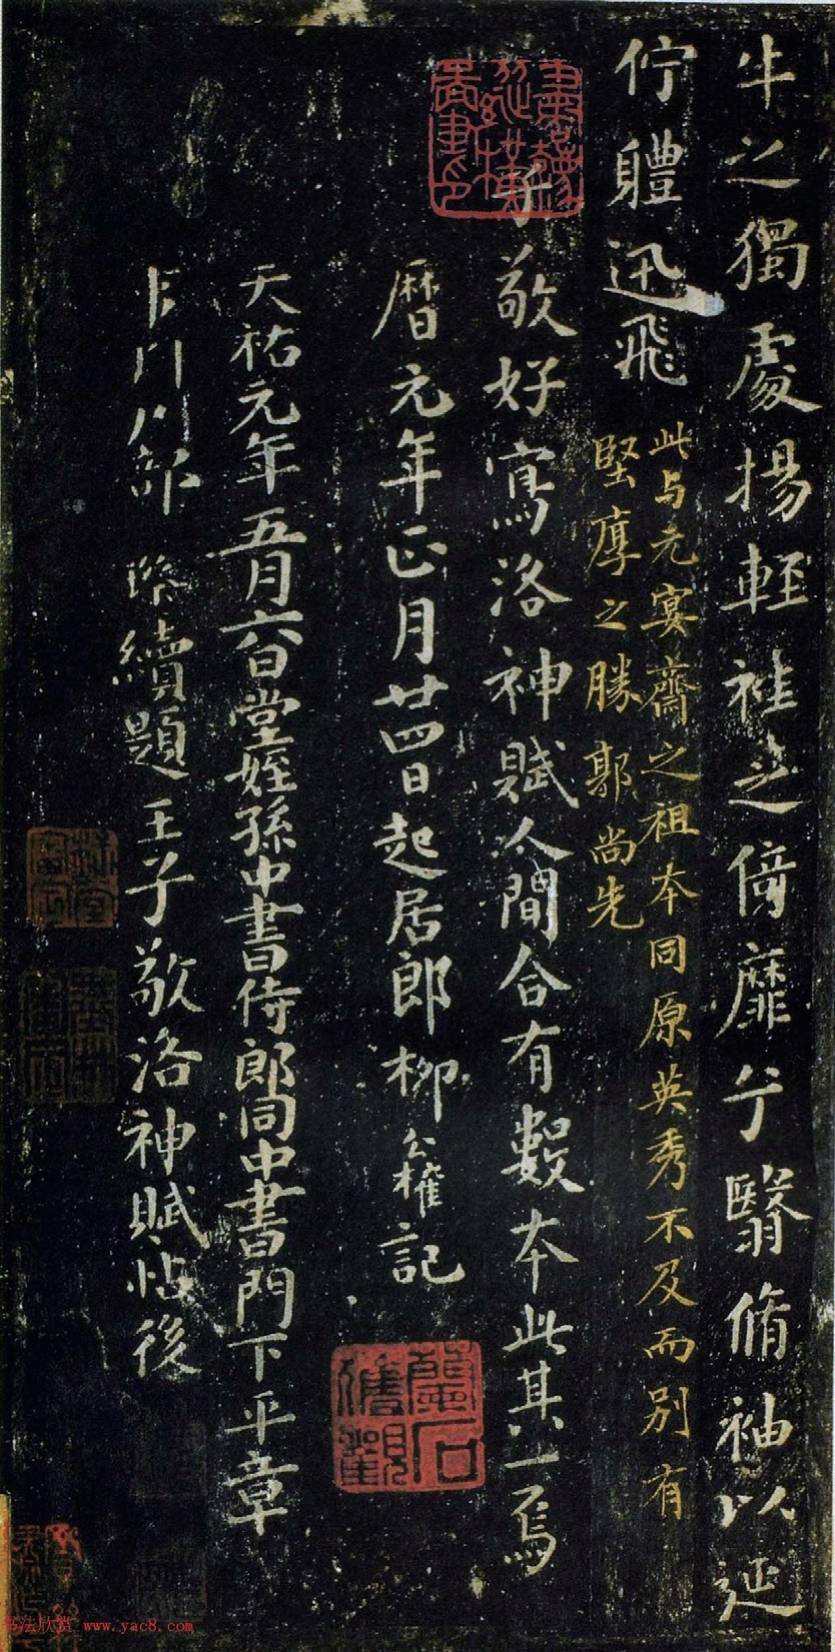 牛之獨處揚輕袿之倚靡兮翳脩袖以延
佇軆迅飛
此与元宴齋之祖本同原英秀不及而别有
堅厚之勝郭尚先
子敬好寫洛神賦人間合有數本此其一焉
曆元年正月廿四日起居郎柳公權記
天祐元年五月六日堂姪孫中書侍郎同中書門下平章
部 續題王子敬洛神賦帖後
蘭石
雋觀
书法欣赏 www.yac8.com